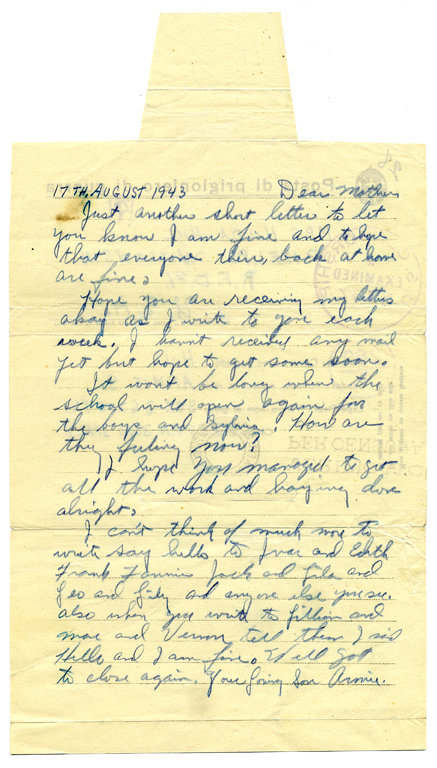 17TH. AUGUST 1943 Dear Mother
Just another short letter to let
you know I am fine and to hope
that everyone there, back at home
are fine.
Hope you are receiving my letters
okay as I write to you each
week. I havnt received any mail
yet but hope to get some soon.
It wont be long when the
school will open again for
the boys and Sylvia. How are
they feeling now?
I hope You managed to get
all the work and haying done
alright.
I can't think of much more to
write say hello to Ivar and Edith
Frank Fannie Jack and Lila and
Leo and and anyone else you see.
also when you write to Lillian and
mae and Vernon tell them I said
Hello and I am fine. Well got
to close again. Your loving Son Arnie.
Posta di prigionieri di
EXAMINED